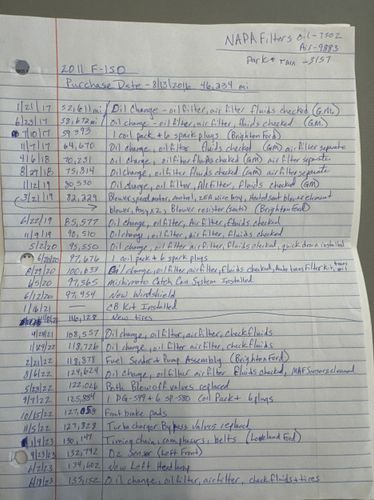 NAPA Filters Oil - 7502
Air - 9883
Park + Train - 3157
2011 F-150
Purchase Date - 8/13/2016 46,234 mi
1/21/17 52,611 mi Oil Change - oil filter, air filter fluids checked (G.M.)
6/23/17 58,672 mi Oil change - oil filter, air filter, fluids checked (GM)
7/10/17 59,393 1 coil pack + 6 spark plugs (Brighton Ford)
11/7/17 64,670 Oil change, oil filter fluids checked (GM) air filter separate
4/6/18 70,231 Oil change, oil filter fluids checked (GM) air filter separate
8/29/18 75,314 Oil change, oil filter fluids checked (GM) air filter separate
1/12/19 80,330 Oil change, oil filter, Air Filter, Fluids checked (GM)
3/21/19 82,329 Blower speed motor, control, wire assy, Heated seat blower element
blower, assy x2, Blower resistor (seats) (Brighton Ford)
6/22/19 85,577 Oil change, oil filter, Air filter, Fluids checked
11/9/19 90,510 Oil change, oil filter, air filter, fluids checked
5/2/20 95,550 Oil change, oil filter air filter, fluids checked, quick drain installed
97,676 1 coil pack + 6 spark plugs
8/29/20 100,637 Oil change, oilfilter, airfilter, Fluids checked, Auto trans Filter kit, trans oil
97,565 Mishimoto Catch Can System Installed
6/12/20 97,954 New Windshield
1/16/21 CB Kit Installed
116,128 New tires
108,557 Oil change, oil filter, air filter, check fluids
1/29/22 118,726 Oil change, oil filter air filter, check fluids
2/21/22 118,378 Fuel Sender + Pump Assembly (Brighton Ford)
5/6/22 124,624 Oil change, oil filter air filter fluids checked, MAF Sensor cleaned
5/23/22 122,026 Both Blow off valves replaced
9/7/22 125,854 1 DG-549 + 6 SP-580 Coil Pack + 6 plugs
10/15/22 127,059 Front brake pads
11/5/22 127,828 Turbocharger Bypass valves replaced
1/9/23 130,147 Timing chain, comphasers, belts (Loveland Ford)
132,792 O2 Sensor (Left Front)
134,602 New Left Headlamp
135,152 Oil change, oil filter, air filter, check fluids + tires